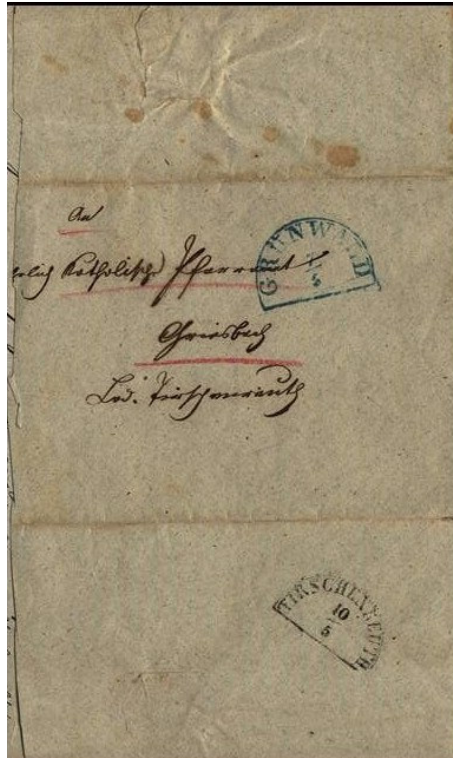 An
Katholische Pfarramt
Griesbach
Ldg. Tirschenreuth
GRÜNWALD
5
TIRSCHENREUTH
10
5